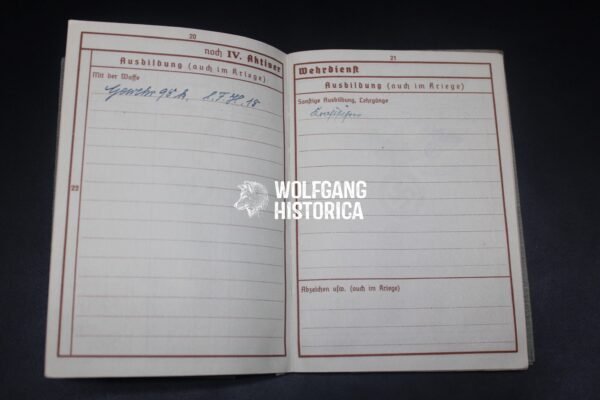 20
noch IV. Aktiver
Ausbildung (auch im Kriege)
Mit der Waffe
Gewehr 98 k. l. F. H. 18
22
21
Wehrdienst
Ausbildung (auch im Kriege)
Sonstige Ausbildung, Lehrgänge
Abzeichen usw. (auch im Kriege)
WOLFGANG
HISTORICA